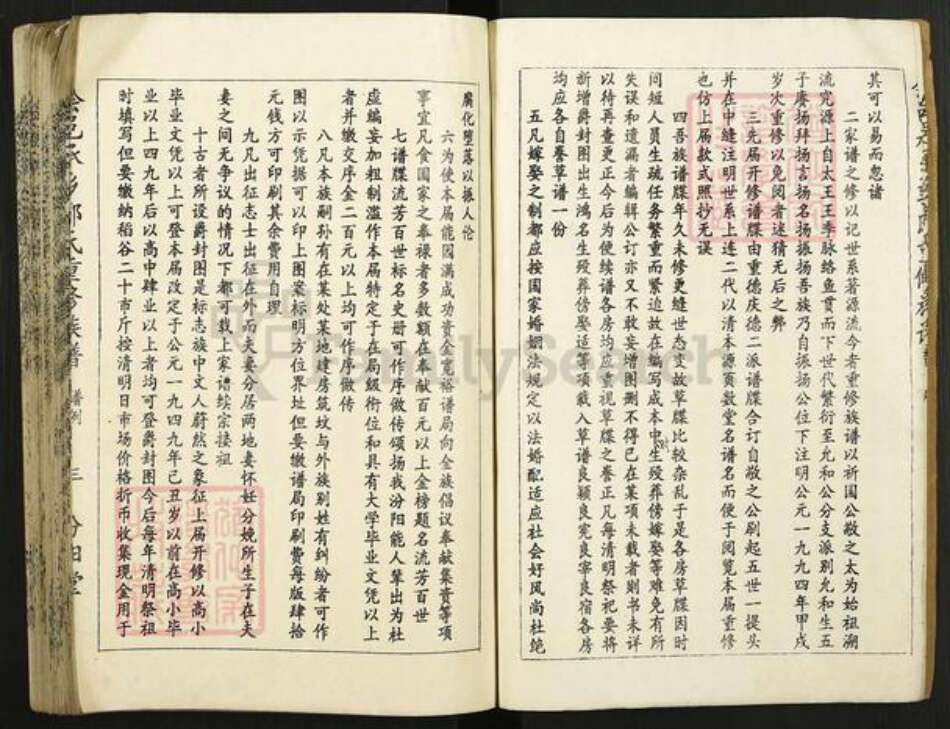 其可以易而忽诸
二家谱之修以记世系著源流今者重修族谱以祈国公敞之太为始祖溯
流究源上自太王王季脉络鱼贯而下世代繁衍至允和公分支派别允和生五
子赓扬拜扬言扬名扬振扬吾族乃自振扬公位下注明公元一九九四年甲戌
岁次重修以免阅者迷猜无后之弊
三先届开修谱牒由重德庆德二派谱牒合订自敞之公刷起五世一提头
并在中缝注明世系上连二代以清本源页数堂名谱名而便于阅览本届重修
也仿上届款式照抄无误
四吾族谱牒年久未修更缝世态变故草牒比较杂乱于是各房草牒因时
间短人员生疏任务繁重而紧迫故在编写成本中生殁葬傍嫁娶等难免有所
失误和遗漏者编辑公订亦又不敢妄增图删不得已在某项未载者则书未详
以待再查更正今后为便续谱各房均应重视草牒之誊正凡每清明祭祀要将
新增爵封图出生鸿名生殁葬傍娶适等项载入草谱良颖良宪良寧良宿各房
均应各自誊草谱一份
五凡嫁娶之制都应按国家婚姻法规定以法婚配适应社会好风尚杜绝
腐化堕落以振人伦
六为使本届能园满成功资金宽裕谱局向全族倡议奉献集资等项
事宜凡食国家之奉禄者多数额在奉献百元以上金榜题名流芳百世
七谱牒流芳百世标名史册可作序做传颂扬我汾阳能人辈出为杜
虚编妄加粗制滥作本届特定于在局级衔位和具有大学毕业文凭以上
者并缴交序金二百元以上均可作序做传
八凡本族嗣孙有在某处某地建房筑坟与外族别姓有纠纷者可作
图以示凭据可以印上图案标明方位界址但要缴谱局印刷费每版肆拾
元钱方可印刷其余费用自理
九凡出征志士出征在外而夫妻分居两地妻怀妊分娩所生子在夫
妻之间无争议的情况下都可载上家谱续宗接祖
十古者所设爵封图是标志族中文人蔚然之象征上届开修以高小
毕业文凭以上可登本届改定于公元一九四九年己丑岁以前在高小毕
业以上四九年后以高中肆业以上者均可登爵封图今后每年清明祭祖
时填写但要缴纳稻谷二十市斤按清明日市场价格折币收集现金用于
谱例
三
FamilySearch